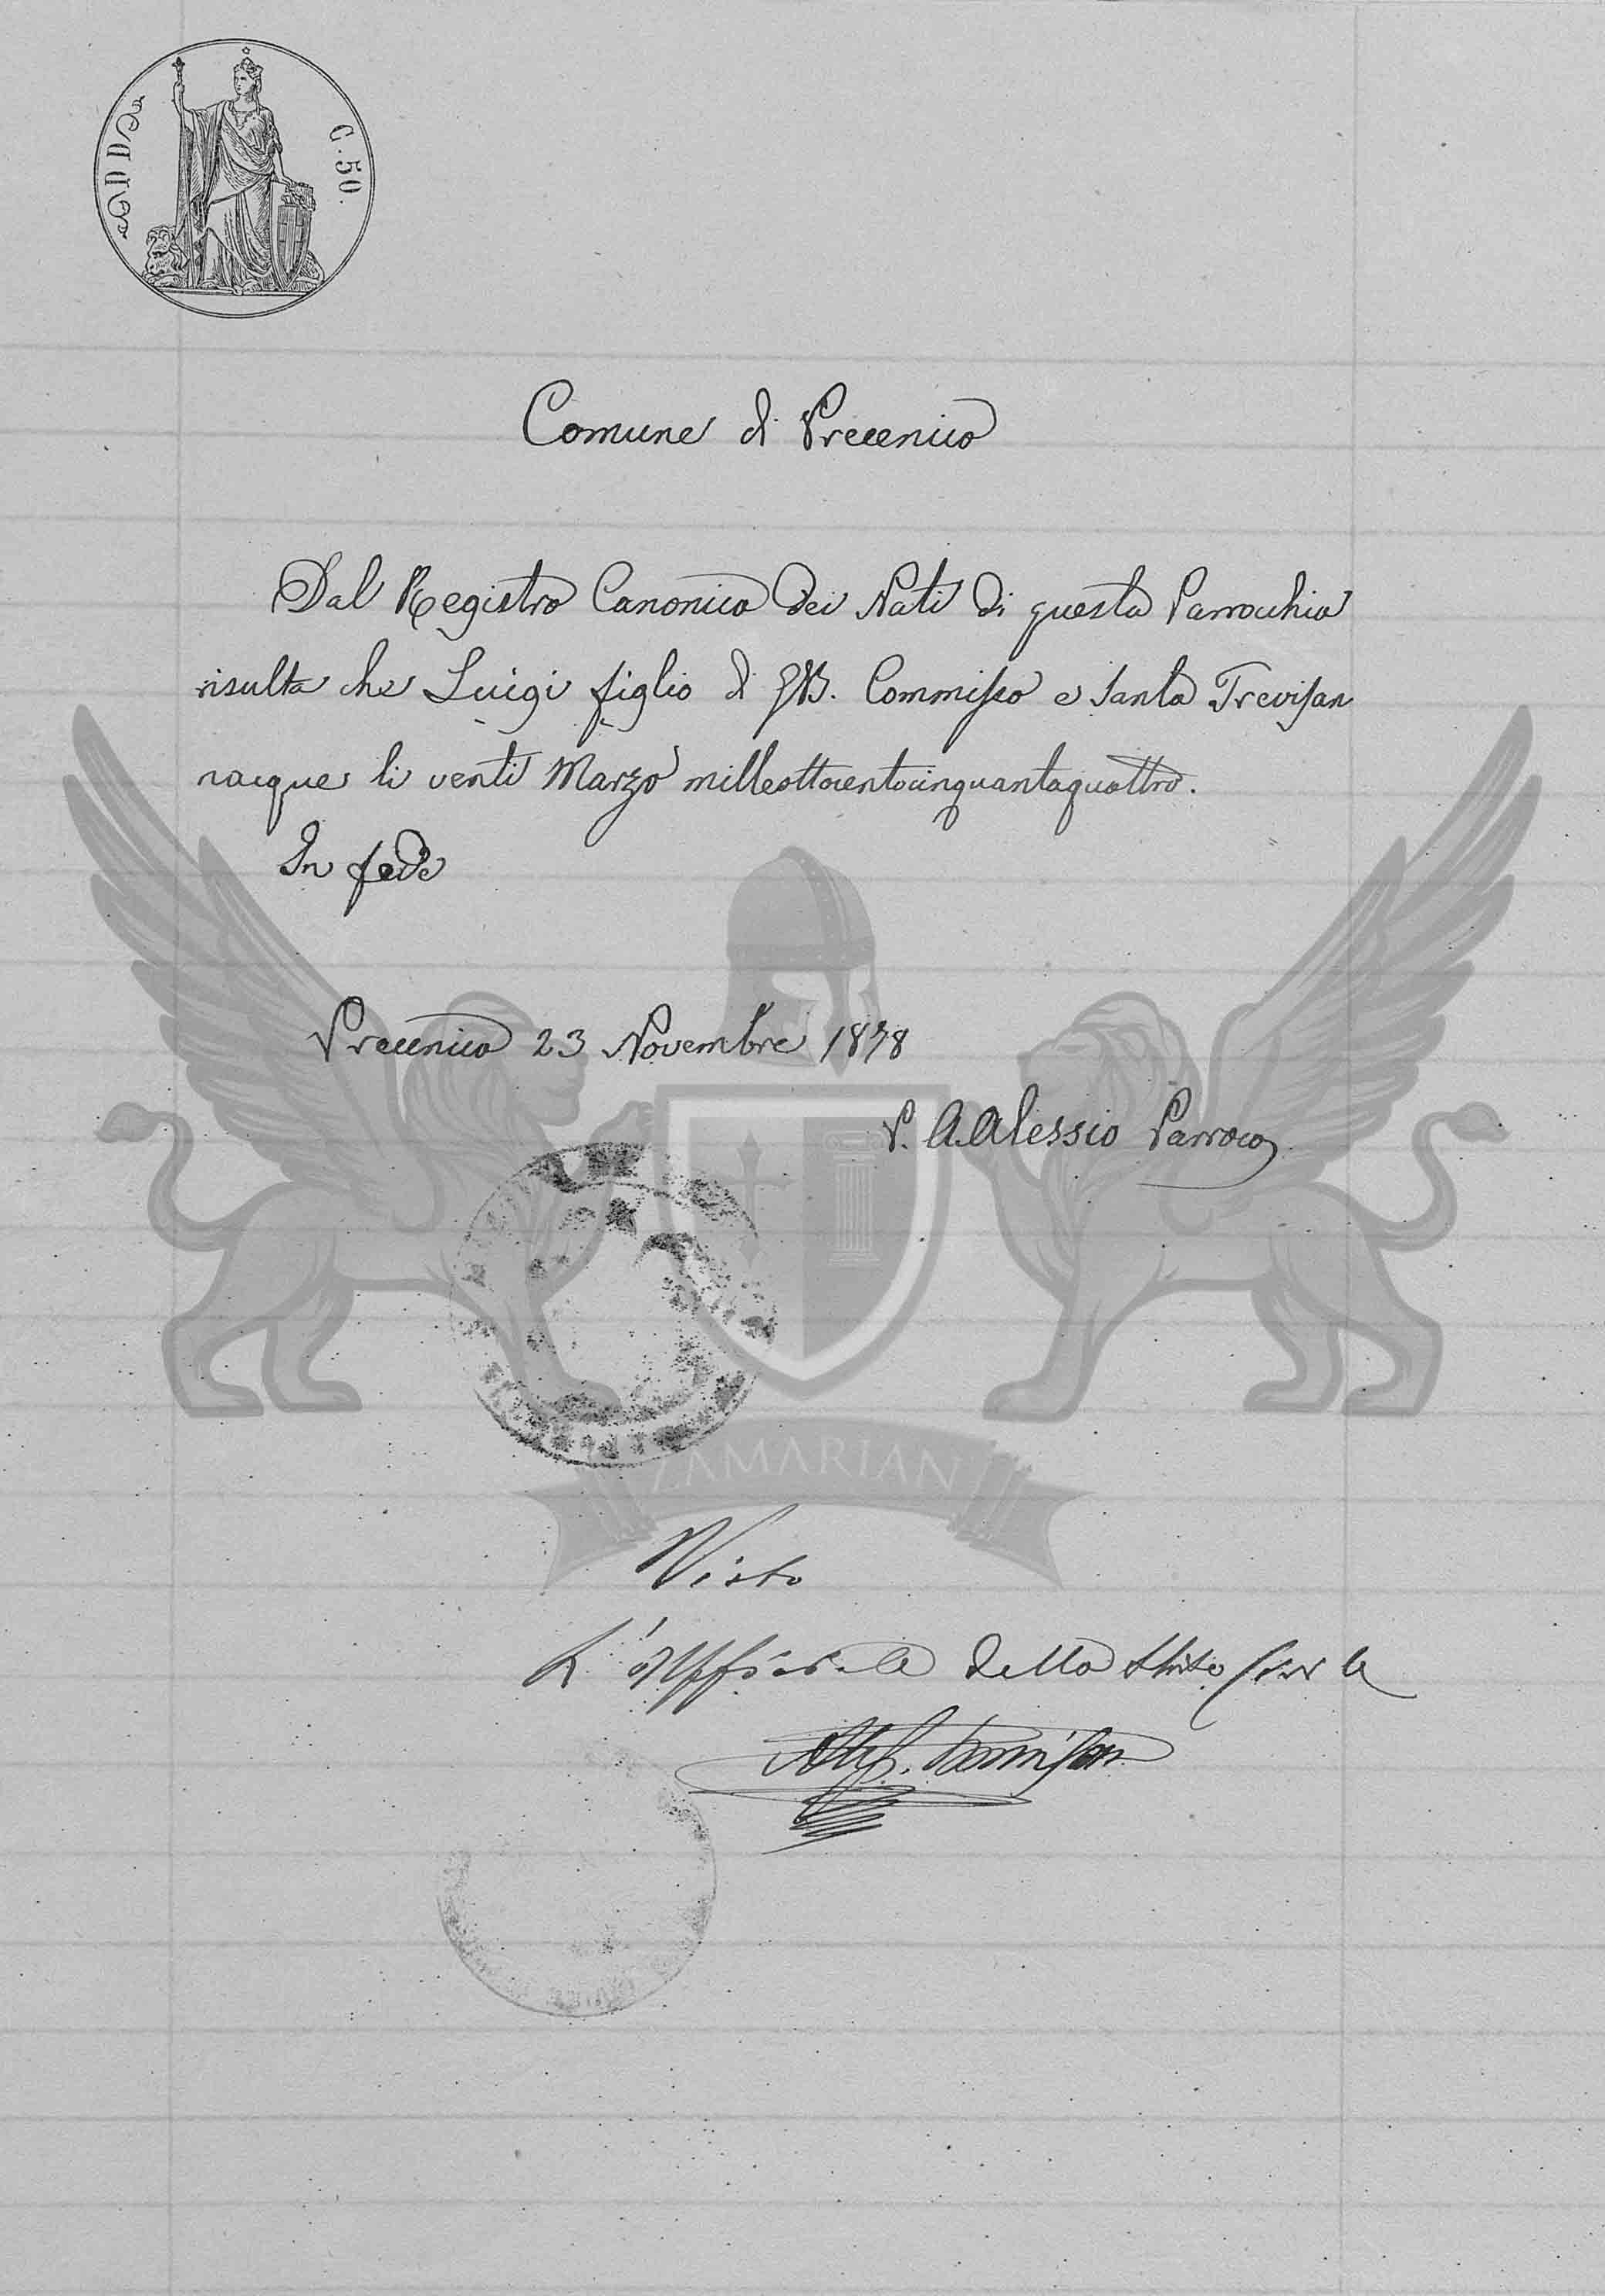 C. 50.
Comune di Precenico
Dal Registro Canonico dei Nati di questa Parrochia
risulta che Luigi figlio di GB. Commisso e Santa Trevisan
nacque li venti Marzo milleottocentocinquantaquattro.
In fede
Precenico 23 Novembre 1878
P. A. Alessio Parroco
ZAMARIAN
Visto
L'Uffiziale dello Stato Civile